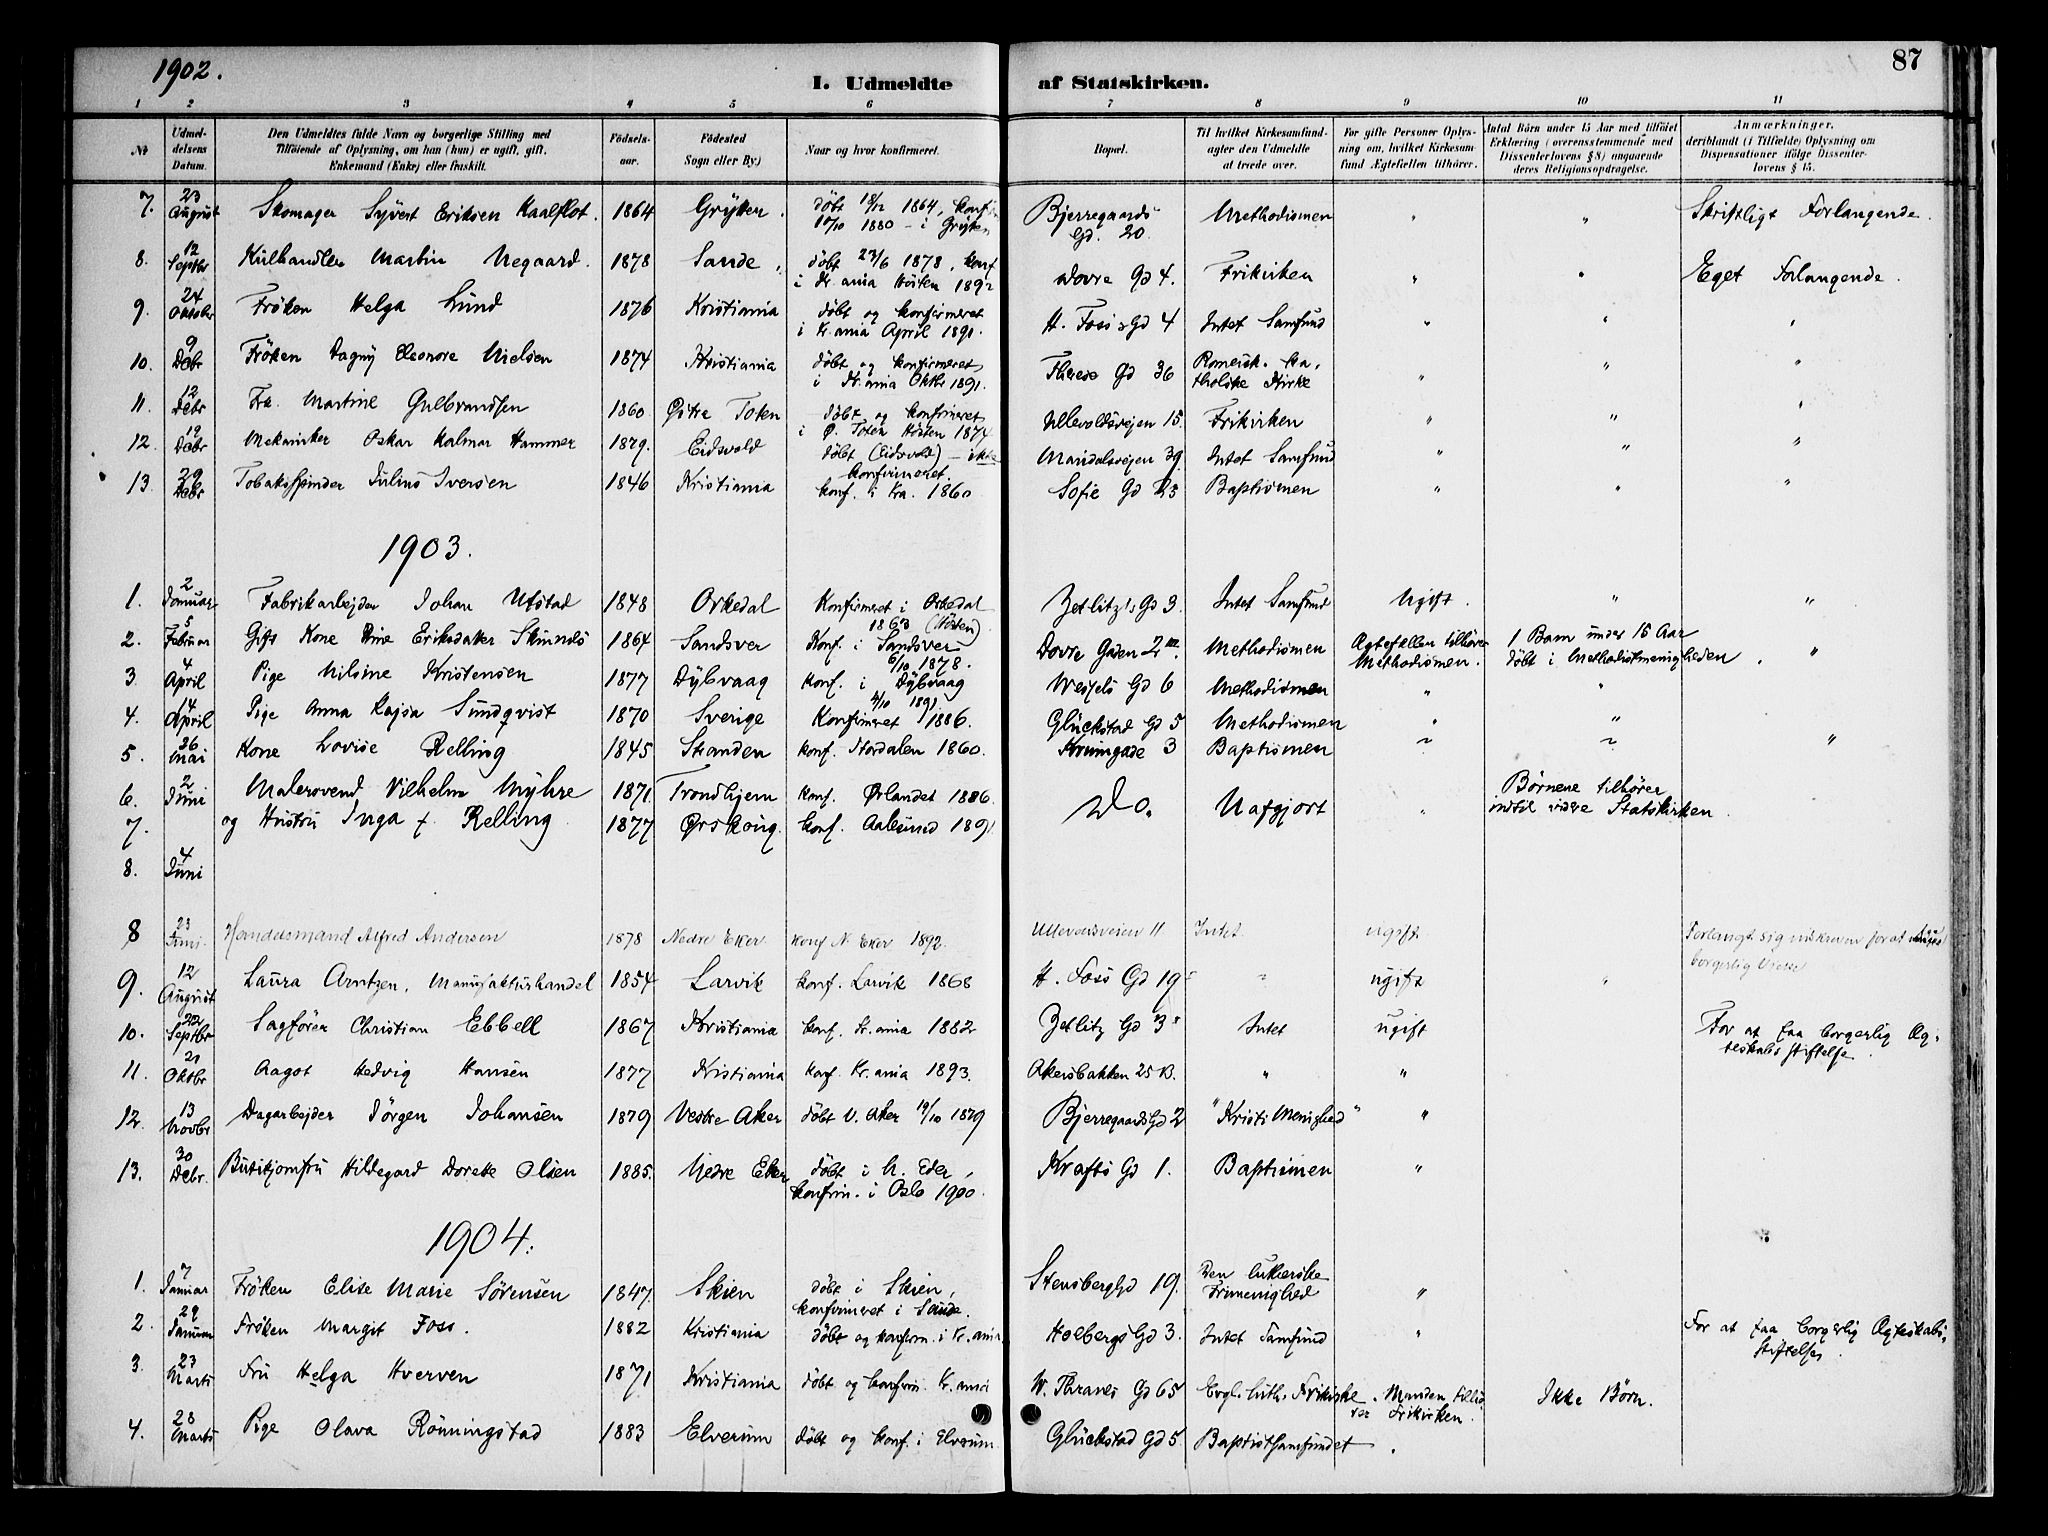 87
1902.
I. Udmeldte af Statskirken.
1 2 3 4 5 6 7 8 9 10 11
No
Udmel-
delsens
Datum.
Den Udmeldtes fulde Navn og borgerlige Stilling med
Tilføiende af Oplysning, om han (hun) er ugift, gift,
Enkemand (Enke) eller fraskilt.
Fødsels-
aar.
Fødested
Sogn eller By.)
Naar og hvor konfirmeret.
Bopæl.
Til hvilket Kirkesamfund
agter den Udmeldte
at træde over.
For gifte Personer Oplys-
ning om, hvilket Kirkesam-
fund Ægtefællen tilhører.
Antal Børn under 15 Aar med tilføiet
Erklæring (overensstemmende med
Dissenterlovens § 8) angaaende
deres Religionsopdragelse.
Anmærkninger,
deriblandt (i Tilfælde) Oplysning om
Dispensationer ifølge Dissenter-
lovens § 15.
7. 23 August Skomager Syvert Eriksen Kaalflot. 1864 Grytten. døbt 18/12 1864, konf 17/10 1880 - i Grytten Bjerregaards Gd. 20. Methodismen " " Skriftligt Forlangende.
8. 12 Septbr Kulhandler Martin Negaard. 1878 Sande " døbt 23/6 1878, konf i Kr.ania Høsten 1892 Dovre Gd 4. Frikirken " " Eget Forlangende.
9. 24 Oktobr Frøken Helga Lund 1876 Kristiania døbt og konfirmeret i Kr.ania April 1891. H. Foss's Gd 4 Intet Samfund " " "
10. 9 Debr Frøken Dagny Eleonore Nielsen 1874 Kristiania døbt og konfirmeret i Kr.ania Oktbr 1891. Therese Gd 36 Romersk-katholske Kirke " " "
11. 12 Debr Fru Martine Gulbrandsen 1860 Østre Toten døbt og konfirmeret i Ø. Toten Høsten 1874 Ullevoldsvejen 15. Frikirken " " "
12. 19 Debr Mekaniker Oskar Kalmar Hammer 1879. Eidsvold døbt (Eidsvold) - ikke konfirmeret. Maridalsvejen 39. Intet Samfund " " "
13. 29 Debr Tobaksspinder Julius Iversen 1846 Kristiania konf. i Kra. 1860 Sofie Gd 23 Baptismen " " "
1903.
1. 2 Januar Fabrikarbejder Johan Utstad 1848 Orkedal Konfirmeret i Orkedal 1863 (Høsten). Zetlitz's Gd 3. Intet Samfund Ugift. " "
2. 5 Februar Gift Kone Eriksdatter 1864 Sandsver Konf. i Sandsver 6/10 1878. Dovre Gaden 2 Methodismen Ægtefællen tilhører Methodismen. 1 Barn under 15 Aar døbt i Methodistmenigheden. "
3. 4 April Pige Nilsine Kristensen 1877 Dybvaag konf. i Dybvaag 4/10 1891 Wessels Gd 6 Methodismen " "
4. 14 April Pige Anna Kajsa Sundqvist 1870 Sverige Konfirmeret 1886. Glückstad Gd 5 Methodismen " "
5. 26 Mai Kone Lovise Relling 1845 Stranden konf. Stordalen 1860. Krumgade 3 Baptismen " " "
6. 2 Juni Malersvend Vilhelm Myhre 1871. Trondhjem konf. Ørlandet 1886. Do. Uafgjort " Børnene tilhører indtil videre Statskirken.
7. og Hustru Inga f. Relling. 1877 Ørskoug. konf. Aalesund 1891
8. 4 Juni
8 23 Juni. Handelsmand Alfred Andersen 1878 Nedre Eker konf N. Eker 1892. Ullevoldsveien 11 Intet. ugift Forlangt sig udskreven for at borgerlig Vielse
9. 12 August Laura Arntzen, Manufakturhandel 1854 Larvik konf. Larvik 1868 H. Foss Gd 19 " ugift "
10. 22 Septbr Sagfører Christian Ebbell 1867 Kristiania konf. Kr.ania 1882 Zetlitz Gd 3 Intet ugift For at faa borgerlig Æg-
teskabs stiftelse.
11. 21 Oktbr Aagot Hedvig Hansen 1877 Kristiania konf. Kr.ania 1893. Akersbakken 25 B. " "
12. 13 Novbr Dagarbejder Jørgen Johansen 1879 Vestre Aker døbt V. Aker 19/10 1879 Bjerregaards Gd 2 "Kristi Menighed" "
13. 30 Debr. Butikjomfru Hildegard Dorete Olsen 1885. Nedre Eker døbt i N. Eker, konfirm. i Oslo 1900. Krafts Gd 1. Baptismen "
1904.
1. 7 Januar Frøken Elise Marie Sørensen 1847. Skien døbt i Skien, konfirmeret i Sande. Stensberg Gd 19. Den lutherske Frimenighed "
2. 29 Januar Frøken Margit Foss. 1882 Kristiania døbt og konfirm. i Kr.ania Holbergs Gd 3. Intet Samfund " For at faa borgerlig Ægteskabs-
stiftelse.
3. 23 Marts Fru Helga Hverven 1871 Kristiania døbt og konfirm. Kr.ania W. Thranes Gd 65 Evgl. luth. Frikirke. Manden tilhører Frikirken. Ikke Børn.
4. 28 Marts Pige Olava Rønningstad 1883 Elverum døbt og konf. i Elverum Glückstad Gd 5 Baptistsamfundet.